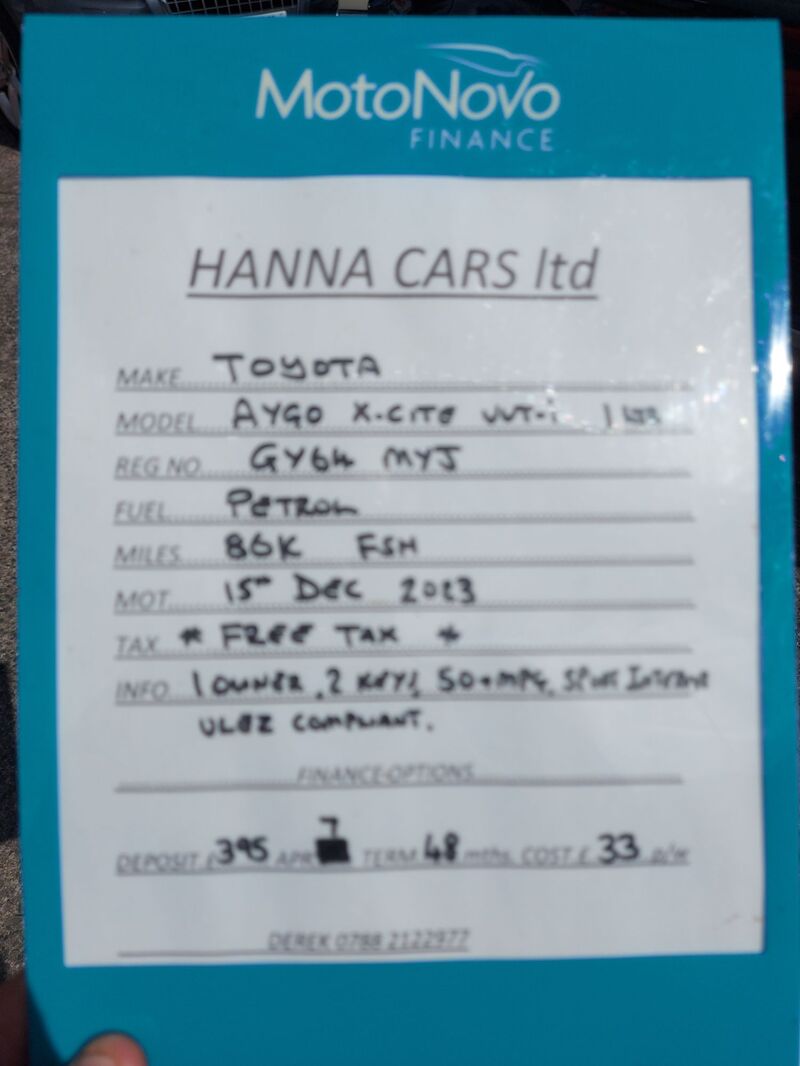 MotoNovo
FINANCE
HANNA CARS ltd
MAKE TOYOTA
MODEL AYGO X-CITE VVT-i 1 LTR
REG NO GY64 MYJ
FUEL PETROL
MILES 86K FSH
MOT 15TH DEC 2023
TAX * FREE TAX *
INFO 1 OWNER, 2 KEYS, 50+MPG,
ULEZ COMPLIANT.
FINANCE OPTIONS
DEPOSIT £395 APR 7 TERM 48 mths. COST £ 33 p/w
DEREK 0788 2122977